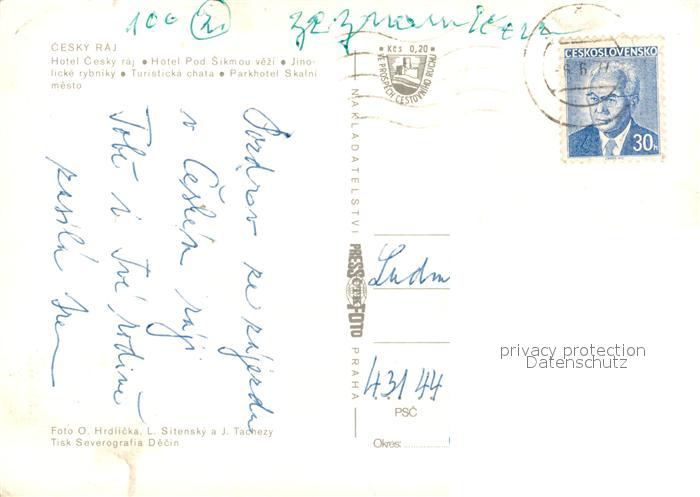 100 21.
ČESKÝ RÁJ
Hotel Český ráj ● Hotel Pod Šikmou věží ● Jino-
lické rybníky ● Turistická chata ● Parkhotel Skalní
město
Pozdrav ze zájezdu
v Českém ráji
Tobě i Tvé rodině
posílá
Kčs 0,20
VE PROSPĚCH CESTOVNÍHO RUCHU
ČESKOSLOVENSKO
30h
NAKLADATELSTVÍ
PRESSFOTO
PRAHA
Ludm
431 44
PSČ
Okres:
privacy protection
Datenschutz
Foto O. Hrdlička, L. Sitenský a J. Tachezy
Tisk Severografia Děčín